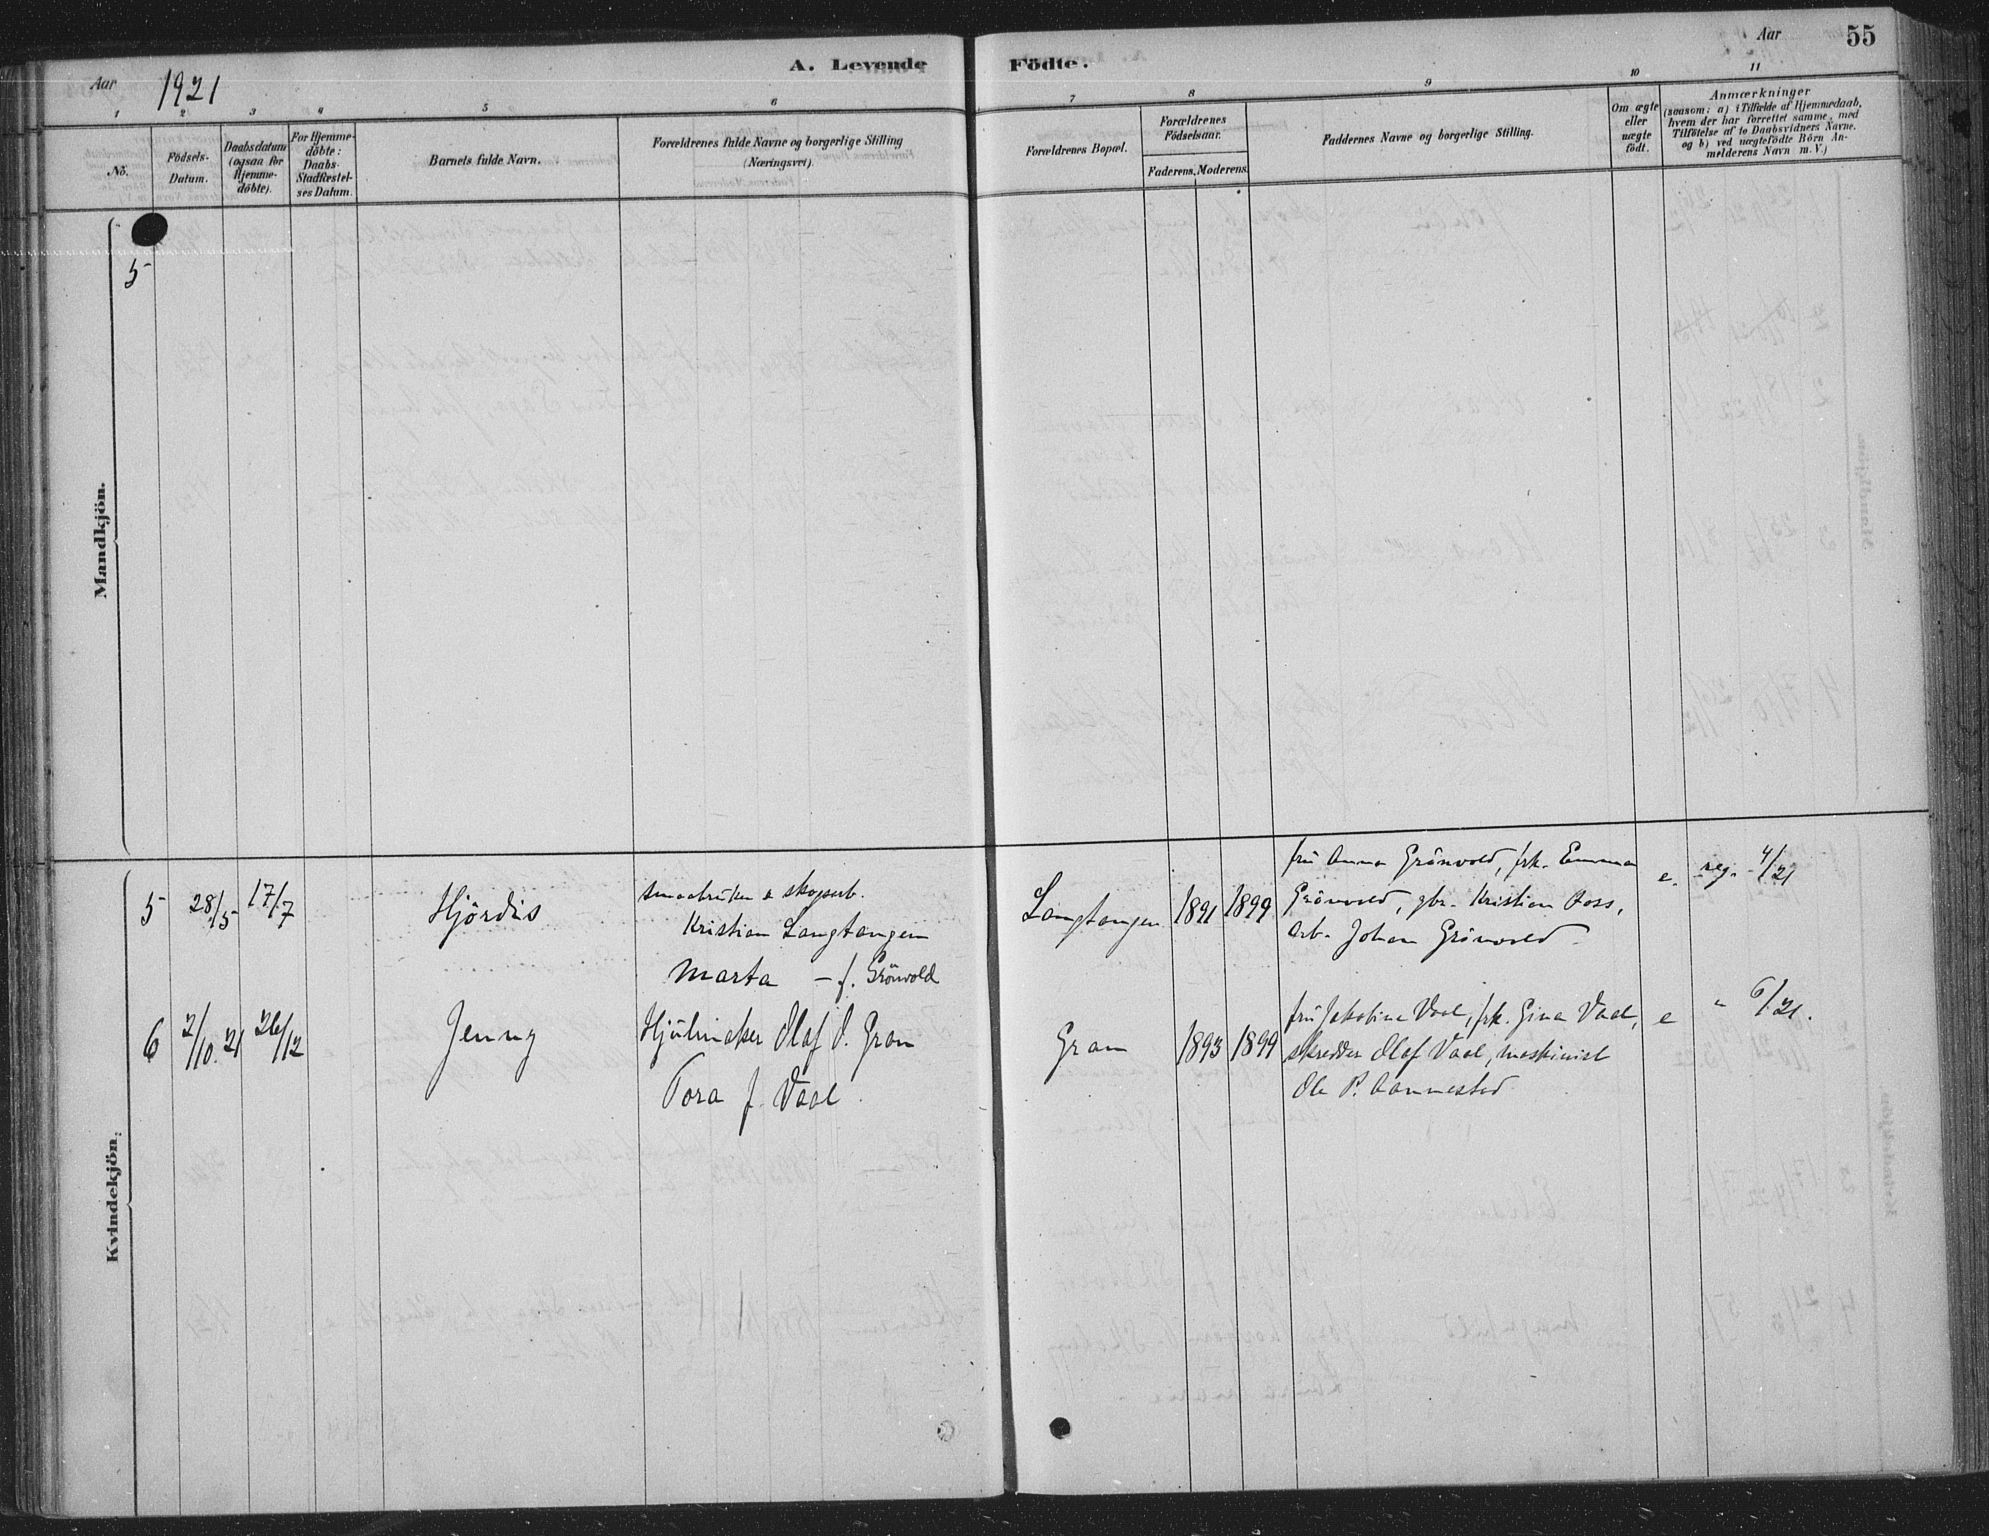 A. Levende Födte.
Aar 1921
Aar 55
1 2 3 4 5 6 7 8 9 10 11
No.
Födsels-Datum.
Daabsdatum (ogsaa for Hjemme-döbte).
For Hjemme-döbte: Daabs-Stadfæstel-ses Datum.
Barnets fulde Navn.
Forældrenes fulde Navne og borgerlige Stilling (Næringsvei).
Forældrenes Bopæl.
Forældrenes Födselsaar.
Faderens. Moderens.
Faddernes Navne og borgerlige Stilling.
Om ægte eller uægte födt.
Anmærkninger
(saasom: a) i Tilfælde af Hjemmedaab, hvem der har forrettet samme, med Tilföielse af to Daabsvidners Navne, og b) ved uægtefödte Börn An-melderens Navn m. V.)
Mandkjön.
5
Kvindekjön.
5 28/5 17/7 Hjördis
Kristian Langtangen
Marta – f. Grönvold
Langtangen 1891 1899
fru Anna Grönvold, frk. Emma
Grönvold, gbr. Kristian
arb. Johan Grönvold
e. reg. 4/21
6 2/10. 21 26/12 Jenny
Hjulmaker Olaf O. Gran
Tora f. Vaal
Gran 1893 1899
fru Jakobine Vaal, frk. Gina Vaal,
skredder Olaf Vaal, maskinist
Ole P. Aannestad
e " 6/21.